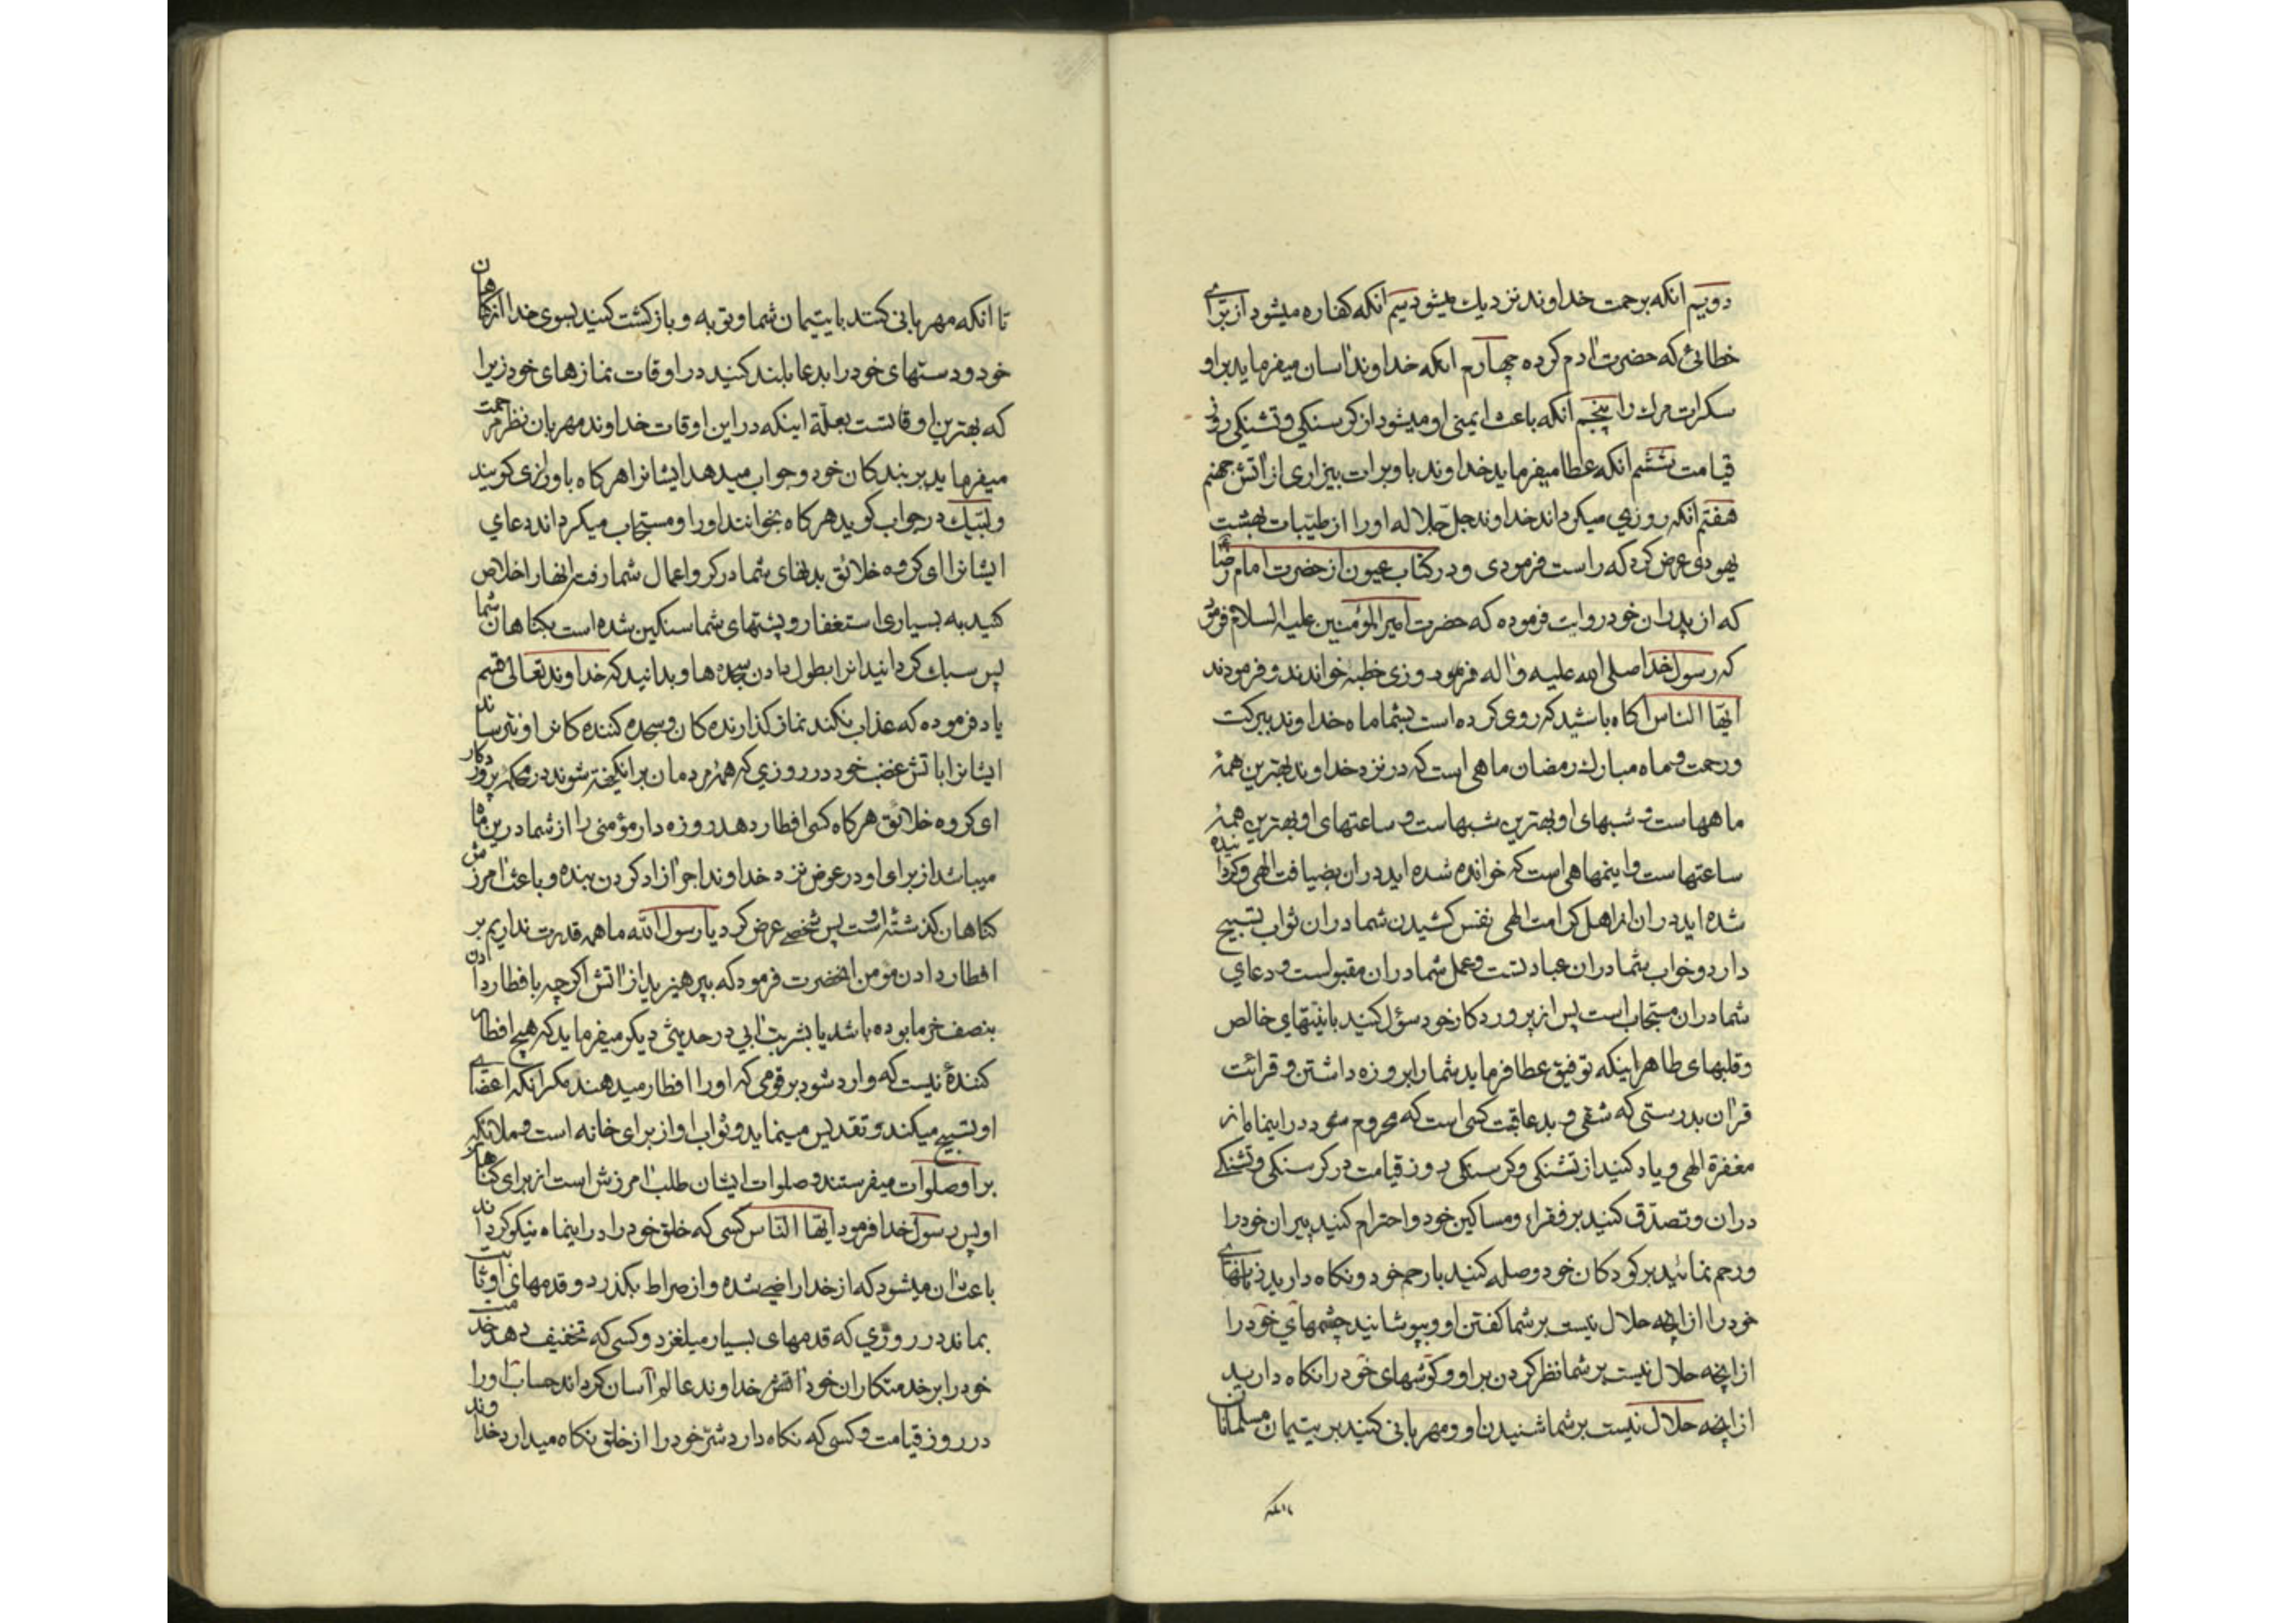 دویم انکه برحمت خداوند نزدیك میشود سیم انکه کناره میشود از برای
خطائی که حضرت ادم کرده چهارم انکه خداوند اسان میفرماید بر او
سکرات مرك را پنجم انکه باعث ایمنی او میشود از کرسنکی و تشنکی روز
قیامت ششم انکه عطا میفرماید خداوند باو برات بیزاری از اتش جهنم
هفتم انکه روزی میکرداند خداوند جل جلاله او را از طیبات بهشت
یهودی عرض کرد که راست فرمودی و در کتاب عیون از حضرت امام رضا
که از پدران خود روایت فرموده که حضرت امیر المؤمنین علیه السلام فرمود
که رسول خدا صلی الله علیه و اله فرمود روزی خطبه خواندند و فرمودند
ایها الناس اکاه باشید که روی کرده است بشما ماه خداوند ببرکت
و رحمت و ماه مبارك رمضان ماهی است که در نزد خداوند بهترین همهٔ
ماههاست و شبهای او بهترین شبهاست و ساعتهای او بهترین همهٔ
ساعتهاست و اینماهی است که خوانده شده اید در ان بضیافت الهی و کردانیده
شده اید در ان از اهل کرامت الهی نفس کشیدن شما در ان ثواب تسبیح
دارد و خواب شما در ان عبادتست و عمل شما در ان مقبولست و دعای
شما در ان مستجاب است پس از پروردکار خود سؤل کنید بانیتهای خالص
و قلبهای طاهر اینکه توفیق عطا فرماید شما را بروزه داشتن و قرائت
قران بدرستی که شقی و بدعاقبت کسی است که محروم شود در اینماه از
مغفرة الهی و یاد کنید از تشنکی و کرسنکی روز قیامت در کرسنکی و تشنکی
در ان و تصدق کنید بر فقراء و مساکین خود و احترام کنید پیران خود را
و رحم نمائید بر کودکان خود وصله کنید با رحم خود و نکاه دارید زبانهای
خود را از انچه حلال نیست بر شما کفتن او و بپوشانید چشمهای خود را
از انچه حلال نیست بر شما نظر کردن بر او و کوشهای خود را نکاه دارید
از انچه حلال نیست بر شما شنیدن او و مهربانی کنید بر یتیمان مسلمانان
تا انکه
تا انکه مهربانی کنند با یتیمان شما و توبه و بازکشت کنید بسوی خدا از کناهان
خود و دستهای خود را بدعا بلند کنید در اوقات نمازهای خود زیرا
که بهترین اوقاتست بعلة اینکه در این اوقات خداوند مهربان نظر رحمت
میفرماید بر بندکان خود و جواب میدهد ایشانرا هرکاه باو رازی کویند
و لبیك در جواب کوید هرکاه بخوانند او را و مستجاب میکرداند دعای
ایشانرا ای کروه خلائق بدنهای شما در کرو اعمال شما رفته انها را خلاص
کنید به بسیاری استغفار و پشتهای شما سنکین شده است بکناهان شما
پس سبك کردانید انرا بطول دادن سجده ها و بدانید که خداوند تعالی قسم
یاد فرموده که عذاب نکند نماز کذارنده کان و سجده کننده کانرا و نترساند
ایشانرا باتش غضب خود در روزی که همهٔ مردمان برانکیخته شوند در محکمهٔ پروردکار
ای کروه خلائق هرکاه کسی افطار دهد روزه دار مؤمنی را از شما در این ماه
میباشد از برای او در عوض نزد خداوند اجر ازاد کردن بنده و باعث امرزش
کناهان کذشتهٔ اوست پس شخصی عرض کرد یا رسول الله ما همه قدرت نداریم بر
افطار دادن مؤمن انحضرت فرمود که بپرهیزید از اتش اکرچه با افطار دادن
بنصف خرما بوده باشد یا بشربت ابی در حدیثی دیکر میفرماید که هیچ افطار
کنندهٔ نیست که وارد شود بر قومی که او را افطار میدهند مکر انکه اعضای
او تسبیح میکند و تقدیس مینماید و ثواب او از برای خانه است و ملائکه
بر او صلوات میفرستند و صلوات ایشان طلب امرزش است از برای کناهان
او پس رسول خدا فرمود ایها الناس کسی که خلق خود را در اینماه نیکو کرداند
باعث ان میشود که از خدا راضی شده و از صراط بکذرد و قدمهای او ثابت
بماند در روزی که قدمهای بسیار میلغزد و کسی که تخفیف دهد خدمت
خود را بر خدمتکاران خود خداوند عالم آسان کرداند حساب او را
در روز قیامت و کسی که نکاه دارد شر خود را از خلق نکاه میدارد خداوند